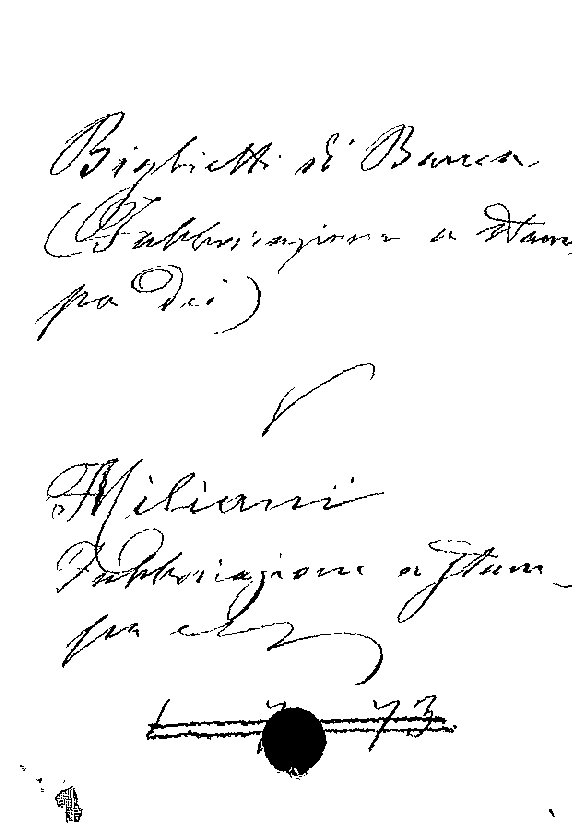 Biglietti di Banca
(Fabbricazione e Stam
pa dei)
V
Miliani
Fabbricazione e Stam-
pa ec